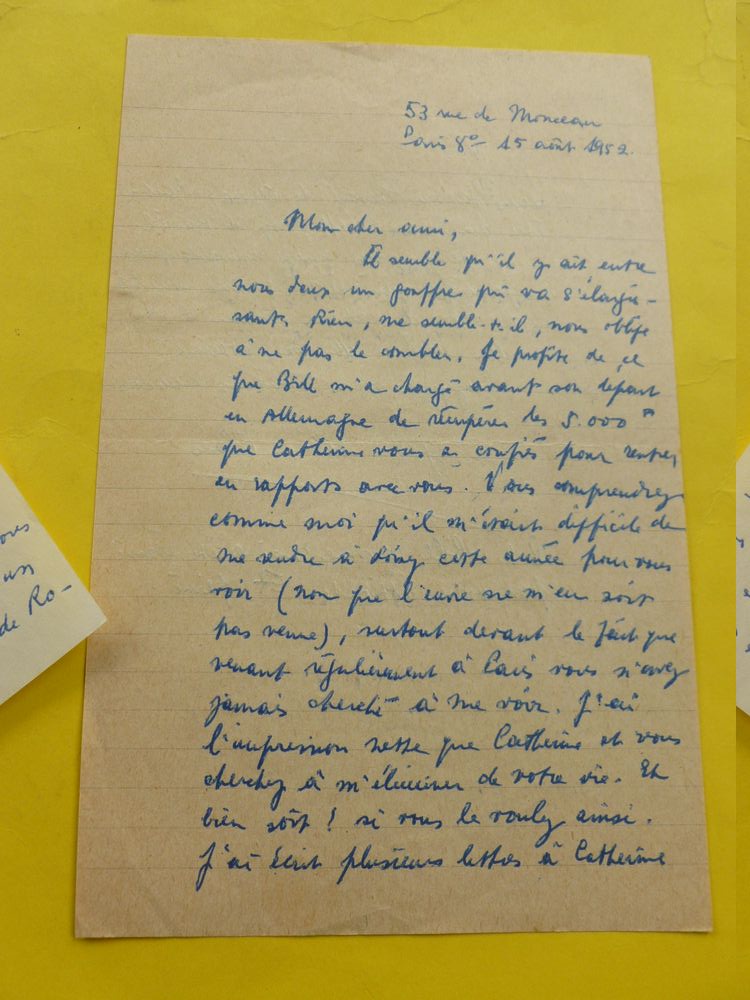 53 rue de Monceau
Paris 8e 15 août 1952.
Mon cher ami,
Il semble qu'il y ait entre
nous deux un gouffre qui va s'élargis-
sant. Rien, me semble-t-il, nous oblige
à ne pas le combler. Je profite de ce
que Bill m'a chargé avant son départ
en Allemagne de récupérer les 5.000
que Catherine vous a confiés pour rentrer
en rapports avec vous. Vous comprendrez
comme moi qu'il m'était difficile de
me rendre à cette année pour vous
voir (non que l'envie ne m'en soit
pas venue), surtout devant le fait que
venant régulièrement à Paris vous n'avez
jamais cherché à me voir. J'ai
l'impression nette que Catherine et vous
cherchez à m'éliminer de votre vie. Et
bien soit ! si vous le voulez ainsi.
J'ai écrit plusieurs lettres à Catherine
ous
un
de Ro-